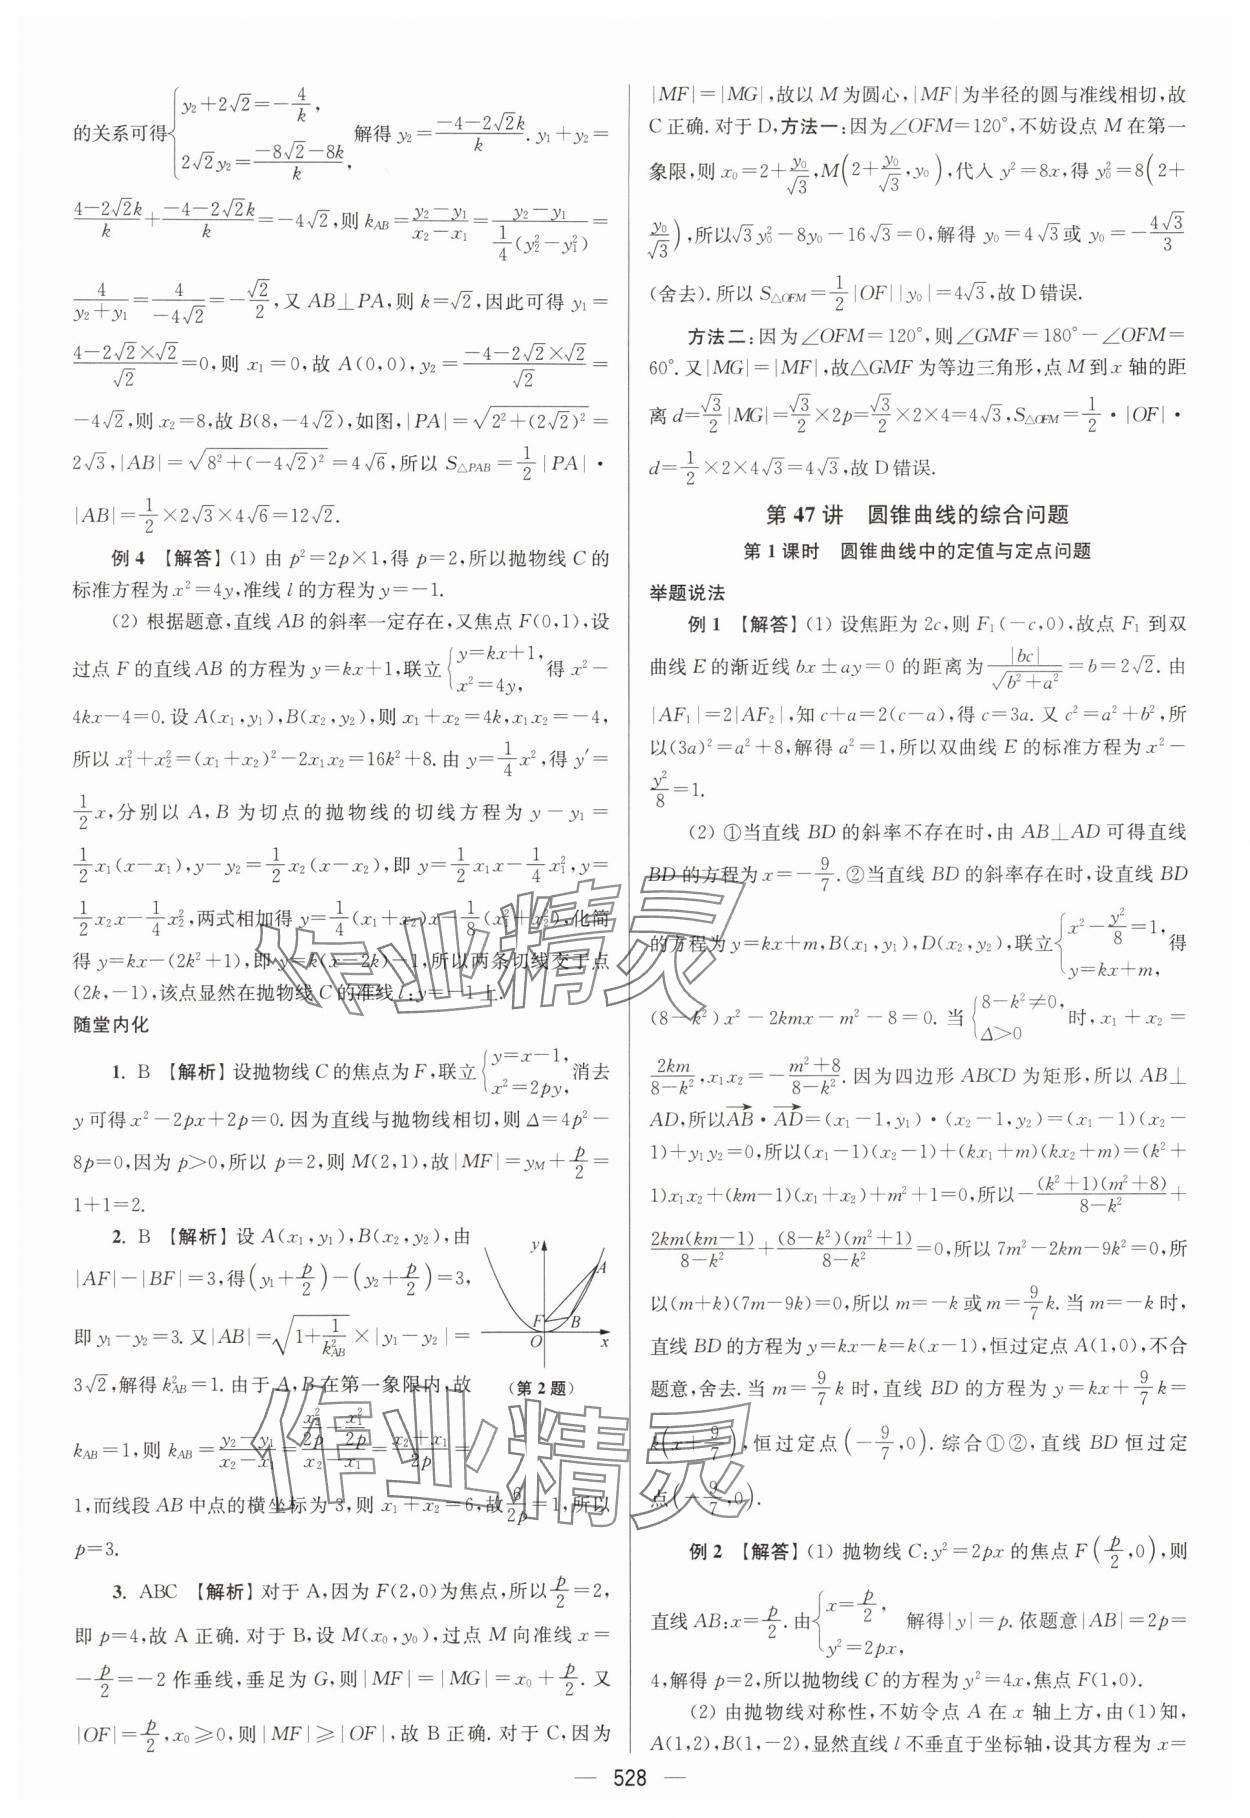 的关系可得{y₂+2√2=-4/k, 2√2y₂=(-8√2-8k)/k, 解得 y₂=(-4-2√2k)/k. y₁+y₂=
(4-2√2k)/k+(-4-2√2k)/k=-4√2,则 k_AB=(y₂-y₁)/(x₂-x₁)=(y₂-y₁)/(1/4(y₂²-y₁²))=
4/(y₂+y₁)=4/(-4√2)=-√2/2,又 AB⊥PA,则 k=√2,因此可得 y₁=
(4-2√2×√2)/√2=0,则 x₁=0,故 A(0,0),y₂=(-4-2√2×√2)/√2=
-4√2,则 x₂=8,故 B(8,-4√2),如图,|PA|=√(2²+(2√2)²)=
2√3,|AB|=√(8²+(-4√2)²)=4√6,所以 S△PAB=1/2|PA|·
|AB|=1/2×2√3×4√6=12√2.
例 4 【解答】(1) 由 p²=2p×1,得 p=2,所以抛物线 C 的
标准方程为 x²=4y,准线 l 的方程为 y=-1.
(2) 根据题意,直线 AB 的斜率一定存在,又焦点 F(0,1),设
过点 F 的直线 AB 的方程为 y=kx+1,联立{y=kx+1, x²=4y, 得 x²-
4kx-4=0.设 A(x₁,y₁),B(x₂,y₂),则 x₁+x₂=4k,x₁x₂=-4,
所以 x₁²+x₂²=(x₁+x₂)²-2x₁x₂=16k²+8.由 y=1/4x²,得 y′=
1/2x,分别以 A,B 为切点的抛物线的切线方程为 y-y₁=
1/2x₁(x-x₁),y-y₂=1/2x₂(x-x₂),即 y=1/2x₁x-1/4x₁²,y=
1/2x₂x-1/4x₂²,两式相加得 y=1/4(x₁+x₂)x-1/8(x₁²+x₂²),化简
得 y=kx-(2k²+1),即 y=k(x-2k)-1,所以两条切线交于点
(2k,-1),该点显然在抛物线 C 的准线 l:y=-1 上.
随堂内化
1. B 【解析】设抛物线 C 的焦点为 F,联立{y=x-1, x²=2py, 消去
y 可得 x²-2px+2p=0.因为直线与抛物线相切,则 Δ=4p²-
8p=0,因为 p>0,所以 p=2,则 M(2,1),故|MF|=y_M+p/2=
1+1=2.
2. B 【解析】设 A(x₁,y₁),B(x₂,y₂),由
|AF|-|BF|=3,得(y₁+p/2)-(y₂+p/2)=3,
即 y₁-y₂=3.又|AB|=√(1+1/k_AB²)×|y₁-y₂|=
3√2,解得 k_AB²=1.由于 A,B 在第一象限内,故
k_AB=1,则 k_AB=(y₂-y₁)/(x₂-x₁)=(x₂²/2p-x₁²/2p)/(x₂-x₁)=(x₂+x₁)/2p=
1,而线段 AB 中点的横坐标为 3,则 x₁+x₂=6,故6/2p=1,所以
p=3.
y
A
F
B
O
x
(第 2 题)
3. ABC 【解析】对于 A,因为 F(2,0)为焦点,所以p/2=2,
即 p=4,故 A 正确.对于 B,设 M(x₀,y₀),过点 M 向准线 x=
-p/2=-2 作垂线,垂足为 G,则|MF|=|MG|=x₀+p/2.又
|OF|=p/2,x₀≥0,则|MF|≥|OF|,故 B 正确.对于 C,因为
|MF|=|MG|,故以 M 为圆心,|MF|为半径的圆与准线相切,故
C 正确.对于 D,方法一:因为∠OFM=120°,不妨设点 M 在第一
象限,则 x₀=2+y₀/√3,M(2+y₀/√3,y₀),代入 y²=8x,得 y₀²=8(2+
y₀/√3),所以√3y₀²-8y₀-16√3=0,解得 y₀=4√3或 y₀=-4√3/3
(舍去).所以 S△OFM=1/2|OF||y₀|=4√3,故 D 错误.
方法二:因为∠OFM=120°,则∠GMF=180°-∠OFM=
60°.又|MG|=|MF|,故△GMF 为等边三角形,点 M 到 x 轴的距
离 d=√3/2|MG|=√3/2×2p=√3/2×2×4=4√3,S△OFM=1/2·|OF|·
d=1/2×2×4√3=4√3,故 D 错误.
第 47 讲 圆锥曲线的综合问题
第 1 课时 圆锥曲线中的定值与定点问题
举题说法
例 1 【解答】(1) 设焦距为 2c,则 F₁(-c,0),故点 F₁ 到双
曲线 E 的渐近线 bx±ay=0 的距离为|bc|/√(b²+a²)=b=2√2.由
|AF₁|=2|AF₂|,知 c+a=2(c-a),得 c=3a.又 c²=a²+b²,所
以(3a)²=a²+8,解得 a²=1,所以双曲线 E 的标准方程为 x²-
y²/8=1.
(2) ①当直线 BD 的斜率不存在时,由 AB⊥AD 可得直线
BD 的方程为 x=-9/7.②当直线 BD 的斜率存在时,设直线 BD
的方程为 y=kx+m,B(x₁,y₁),D(x₂,y₂),联立{x²-y²/8=1, y=kx+m, 得
(8-k²)x²-2kmx-m²-8=0.当{8-k²≠0, Δ>0 时,x₁+x₂=
2km/(8-k²),x₁x₂=-(m²+8)/(8-k²).因为四边形 ABCD 为矩形,所以 AB⊥
AD,所以AB→·AD→=(x₁-1,y₁)·(x₂-1,y₂)=(x₁-1)(x₂-
1)+y₁y₂=0,所以(x₁-1)(x₂-1)+(kx₁+m)(kx₂+m)=(k²+
1)x₁x₂+(km-1)(x₁+x₂)+m²+1=0,所以-(k²+1)(m²+8)/(8-k²)+
2km(km-1)/(8-k²)+(8-k²)(m²+1)/(8-k²)=0,所以 7m²-2km-9k²=0,所
以(m+k)(7m-9k)=0,所以 m=-k 或 m=9/7k.当 m=-k 时,
直线 BD 的方程为 y=kx-k=k(x-1),恒过定点 A(1,0),不合
题意,舍去.当 m=9/7k 时,直线 BD 的方程为 y=kx+9/7k=
k(x+9/7),恒过定点(-9/7,0).综合①②,直线 BD 恒过定
点(-9/7,0).
例 2 【解答】(1) 抛物线 C:y²=2px 的焦点 F(p/2,0),则
直线 AB:x=p/2.由{x=p/2, y²=2px, 解得|y|=p.依题意|AB|=2p=
4,解得 p=2,所以抛物线 C 的方程为 y²=4x,焦点 F(1,0).
(2) 由抛物线对称性,不妨令点 A 在 x 轴上方,由(1)知,
A(1,2),B(1,-2),显然直线 l 不垂直于坐标轴,设其方程为 x=
— 528 —
作业精灵
作业精灵